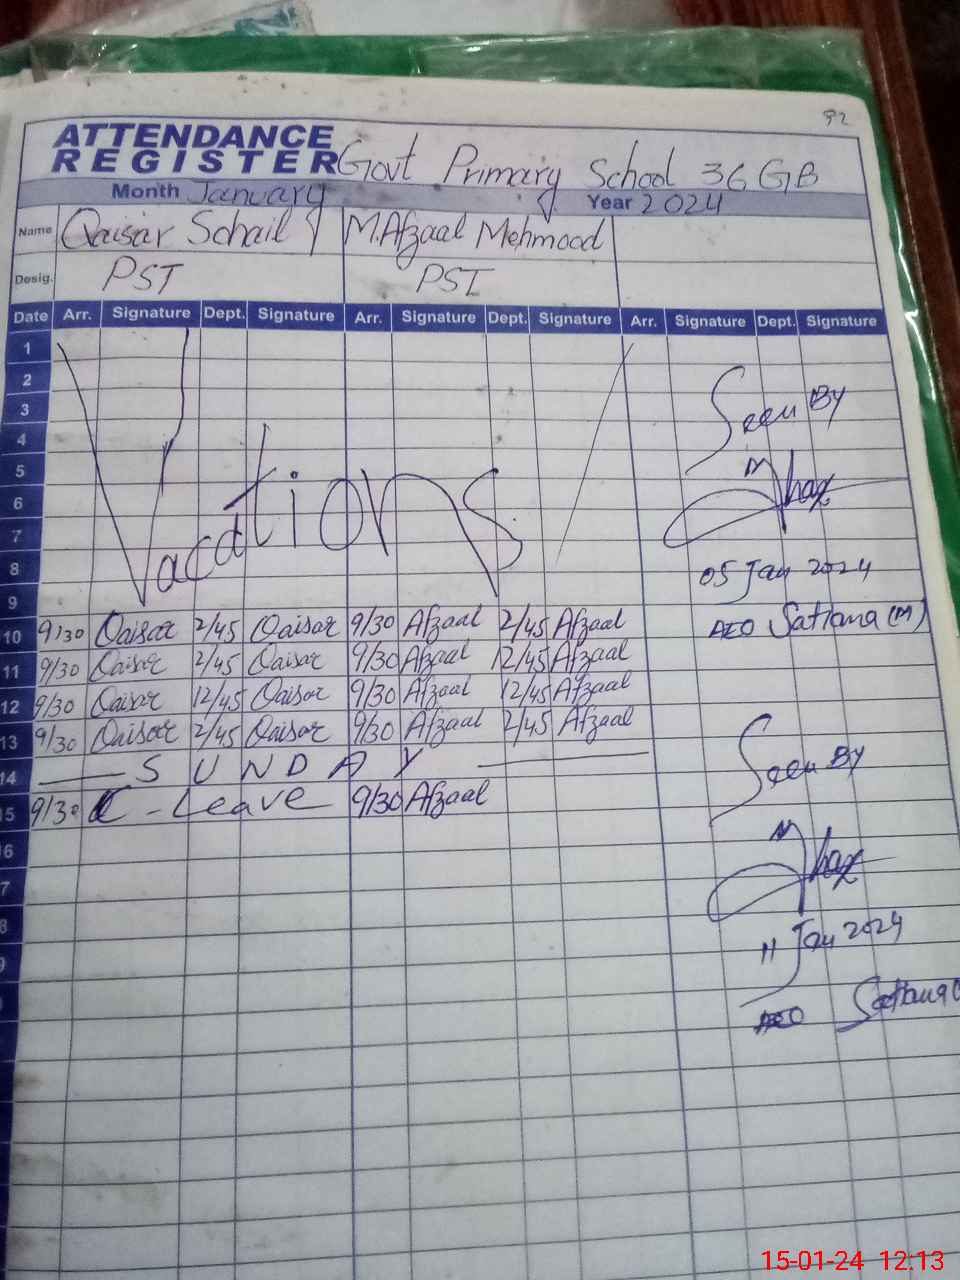 92
ATTENDANCE
REGISTER Govt Primary School 36 GB
Month January Year 2024
Name Qaisar Sohail M.Afzaal Mehmood
Desig. PST PST
Date Arr. Signature Dept. Signature Arr. Signature Dept. Signature Arr. Signature Dept. Signature
1
2
3 Seen By
4
5
6
7 Vacations
8 05 Jan 2024
9
10 9/30 Qaisar 2/45 Qaisar 9/30 Afzaal 2/45 Afzaal AEO Satiana (M)
11 9/30 Qaisar 2/45 Qaisar 9/30 Afzaal 12/45 Afzaal
12 9/30 Qaisar 12/45 Qaisar 9/30 Afzaal 12/45 Afzaal
13 9/30 Qaisar 2/45 Qaisar 9/30 Afzaal 2/45 Afzaal
14 SUNDAY Seen By
15 9/30 C-Leave 9/30 Afzaal
6
7
8 11 Jan 2024
9
AEO Satiana
15-01-24 12:13